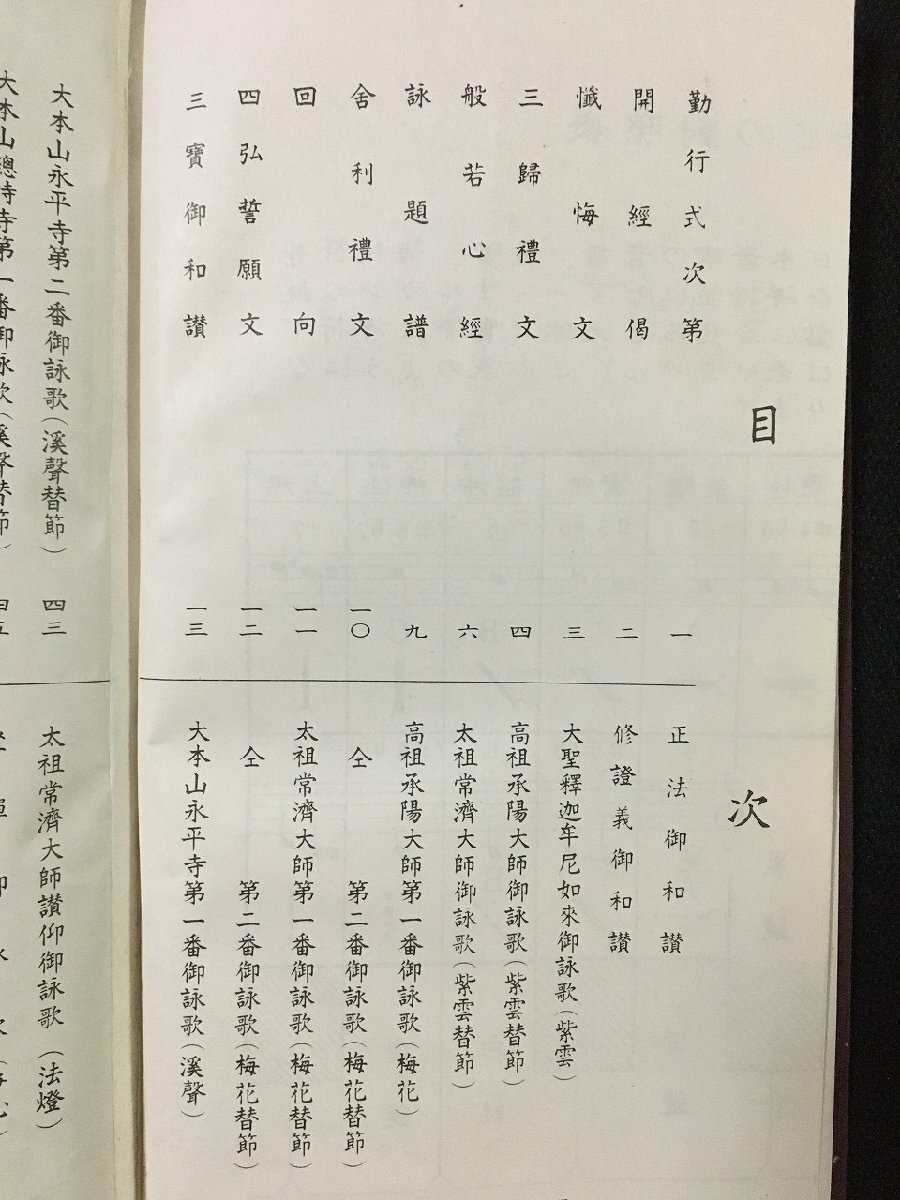 目次
勤行式次第 一
開經偈 二
懺悔文 三
三歸禮文 四
般若心經 六
詠題譜 九
舍利禮文 一〇
回向 一一
四弘誓願文 一二
三寶御和讃 一三
正法御和讃
修證義御和讃
大聖釋迦牟尼如來御詠歌(紫雲)
高祖承陽大師御詠歌(紫雲替節)
太祖常濟大師御詠歌(紫雲替節)
高祖承陽大師第一番御詠歌(梅花)
仝 第二番御詠歌(梅花替節)
太祖常濟大師第一番御詠歌(梅花替節)
仝 第二番御詠歌(梅花替節)
大本山永平寺第一番御詠歌(溪聲)
大本山永平寺第二番御詠歌(溪聲替節) 四三
大本山總持寺第一番御詠歌(溪聲替節) 四五
太祖常濟大師讃仰御詠歌(法燈)